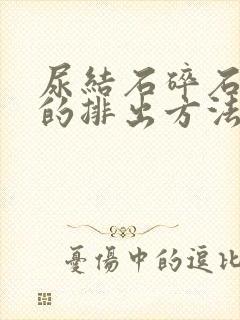 尿結石碎石
的排出方法
憂傷中的逗比